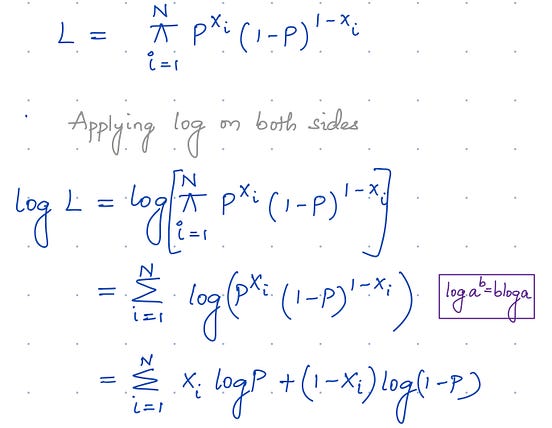 L = π_{i=1}^{N} P^{x_i} (1-P)^{1-x_i}
Applying log on both sides
log L = log[π_{i=1}^{N} P^{x_i} (1-P)^{1-x_i}]
= Σ_{i=1}^{N} log(P^{x_i} (1-P)^{1-x_i})
log a^b = b log a
= Σ_{i=1}^{N} x_i log P + (1-x_i) log(1-P)